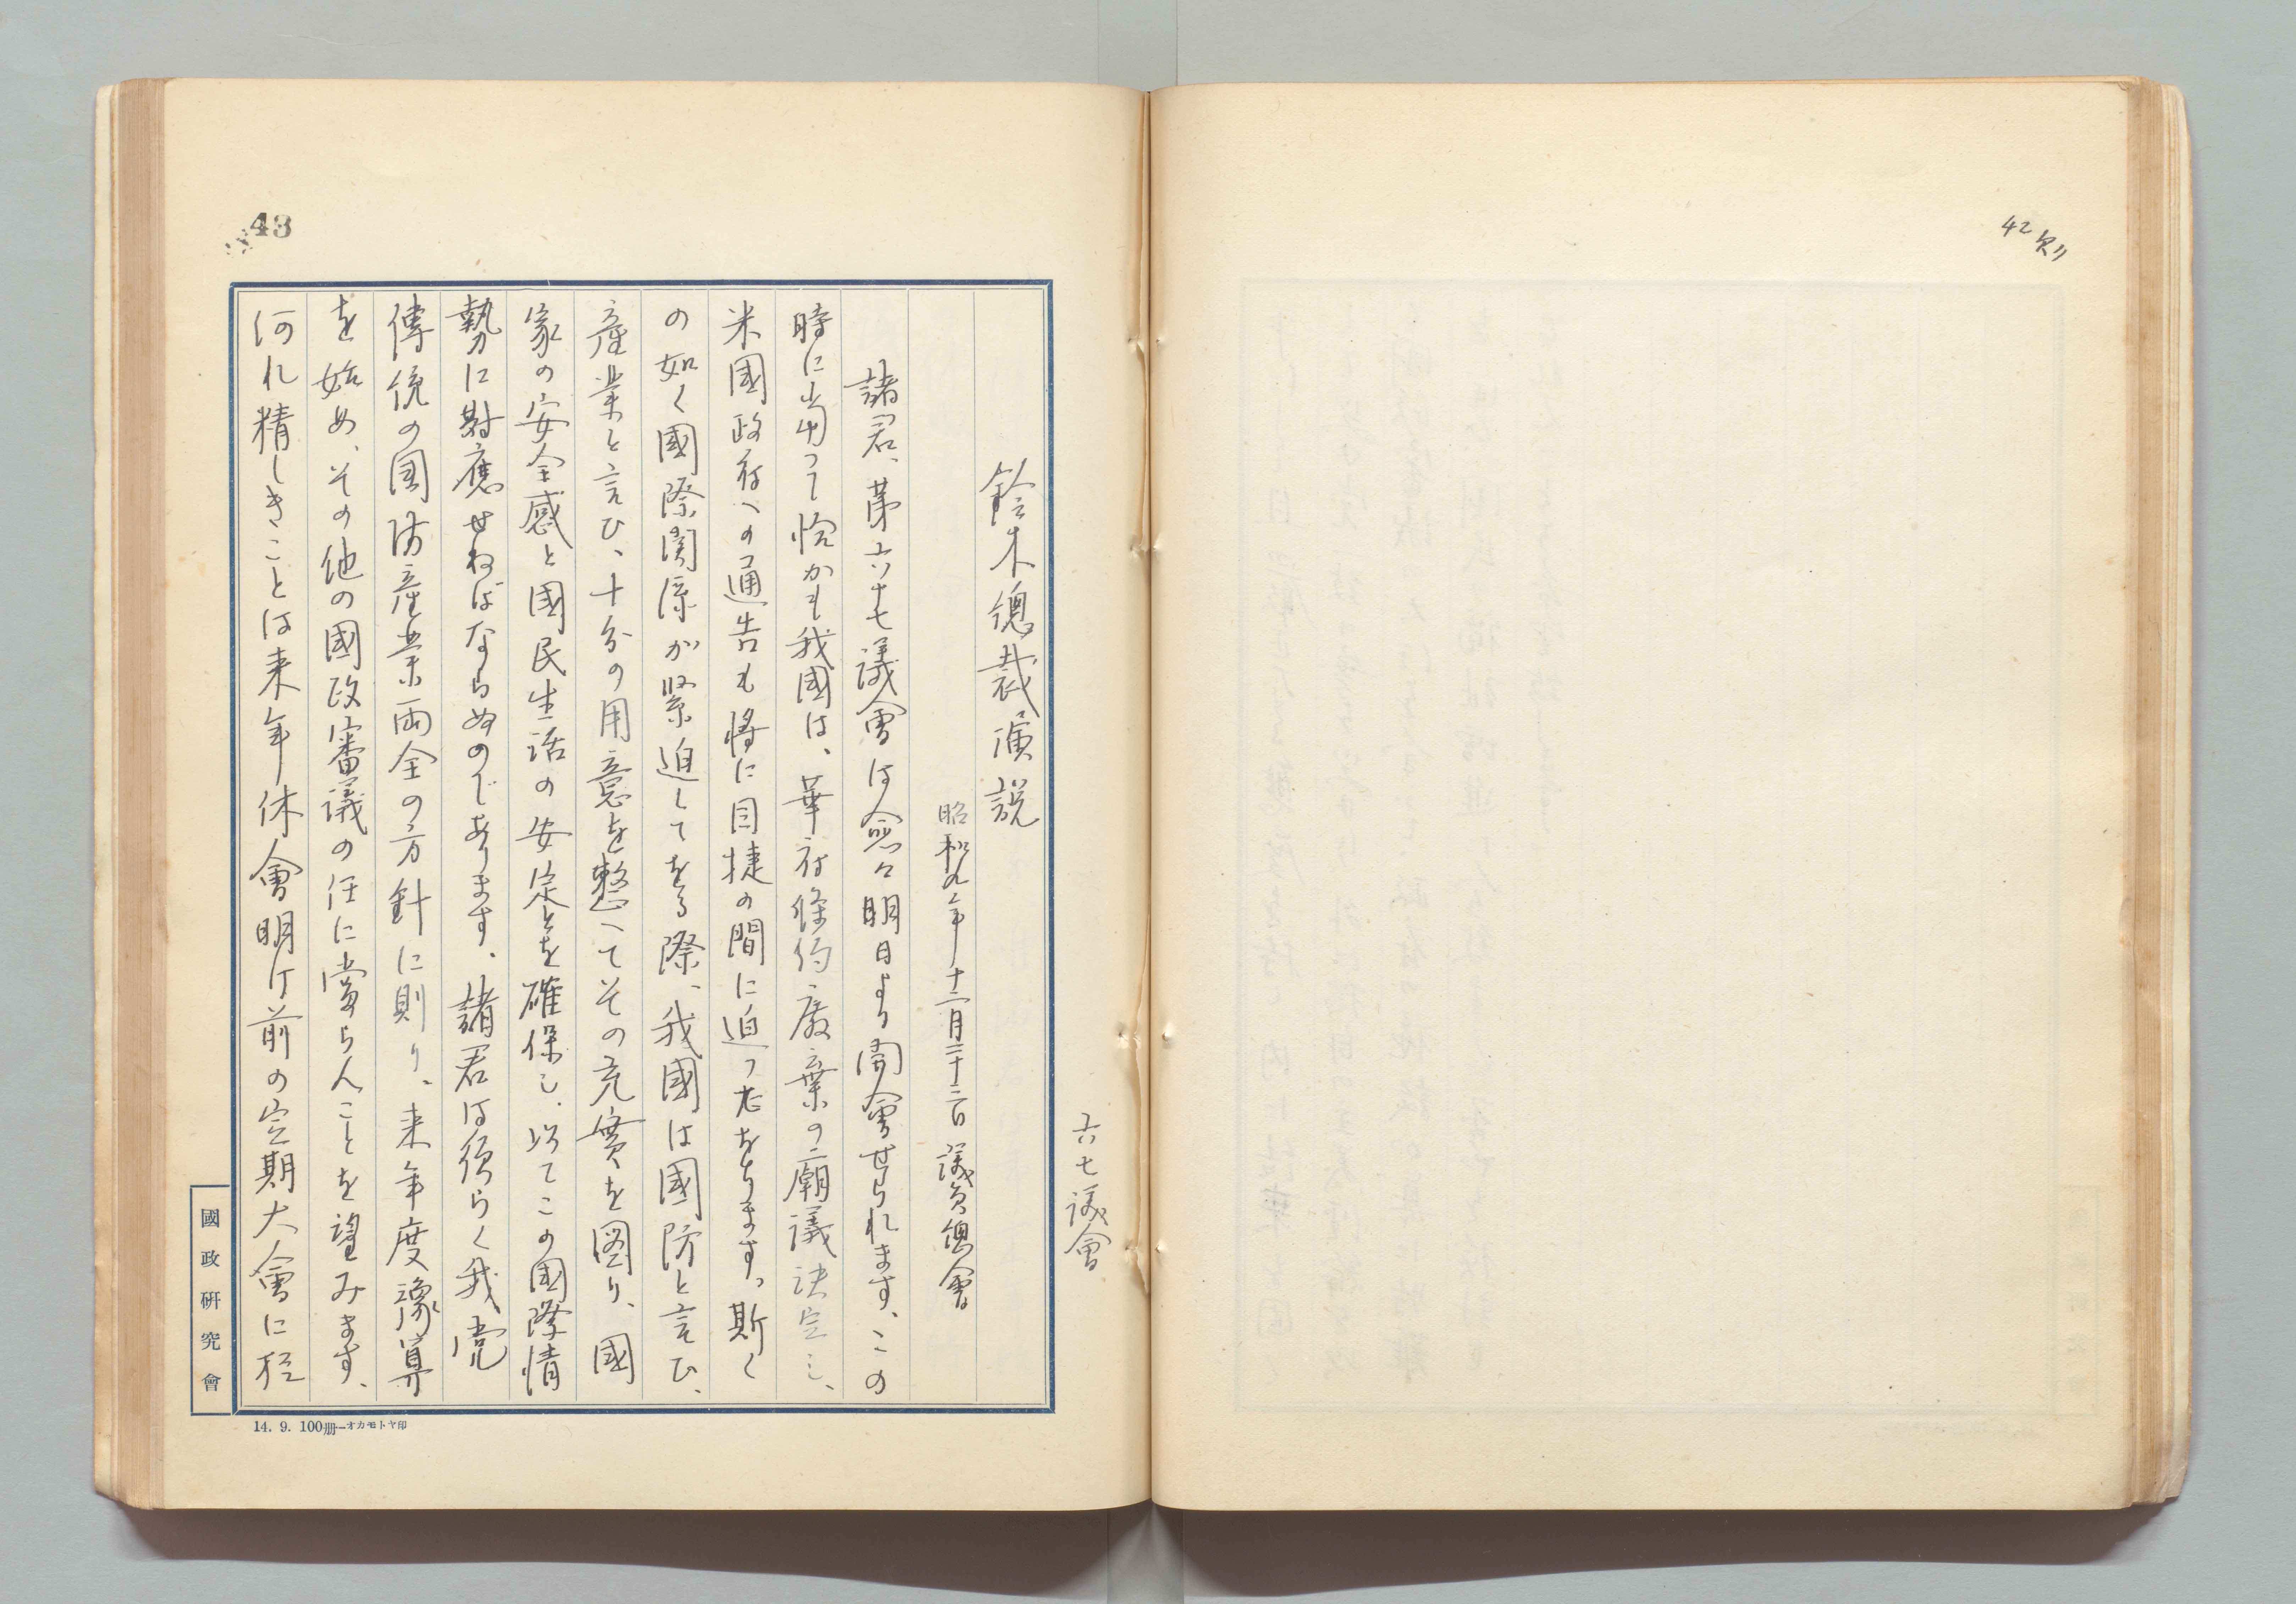 42欠
六七議會
鈴木總裁演説
昭和九年十二月二十三日 議員總會
諸君、第六十七議會は愈々明日より開會せられます、この
時に当つて恰かも我國は、華府條約廢棄の廟議決定し、
米國政府への通告も將に目捷の間に迫つてをります。斯く
の如く國際関係が緊迫してをる際、我國は國防と言ひ、
産業と言ひ、十分の用意を整へてその充實を図り、國
家の安全感と國民生活の安定とを確保し、以てこの國際情
勢に對應せねばならぬのであります、諸君は須らく我党
傳統の国防産業両全の方針に則り、来年度豫算
を始め、その他の國政審議の任に當らんことを望みます、
何れ精しきことは来年休會明け前の定期大會に於
43
國政研究會
14. 9. 100册—オカモトヤ印